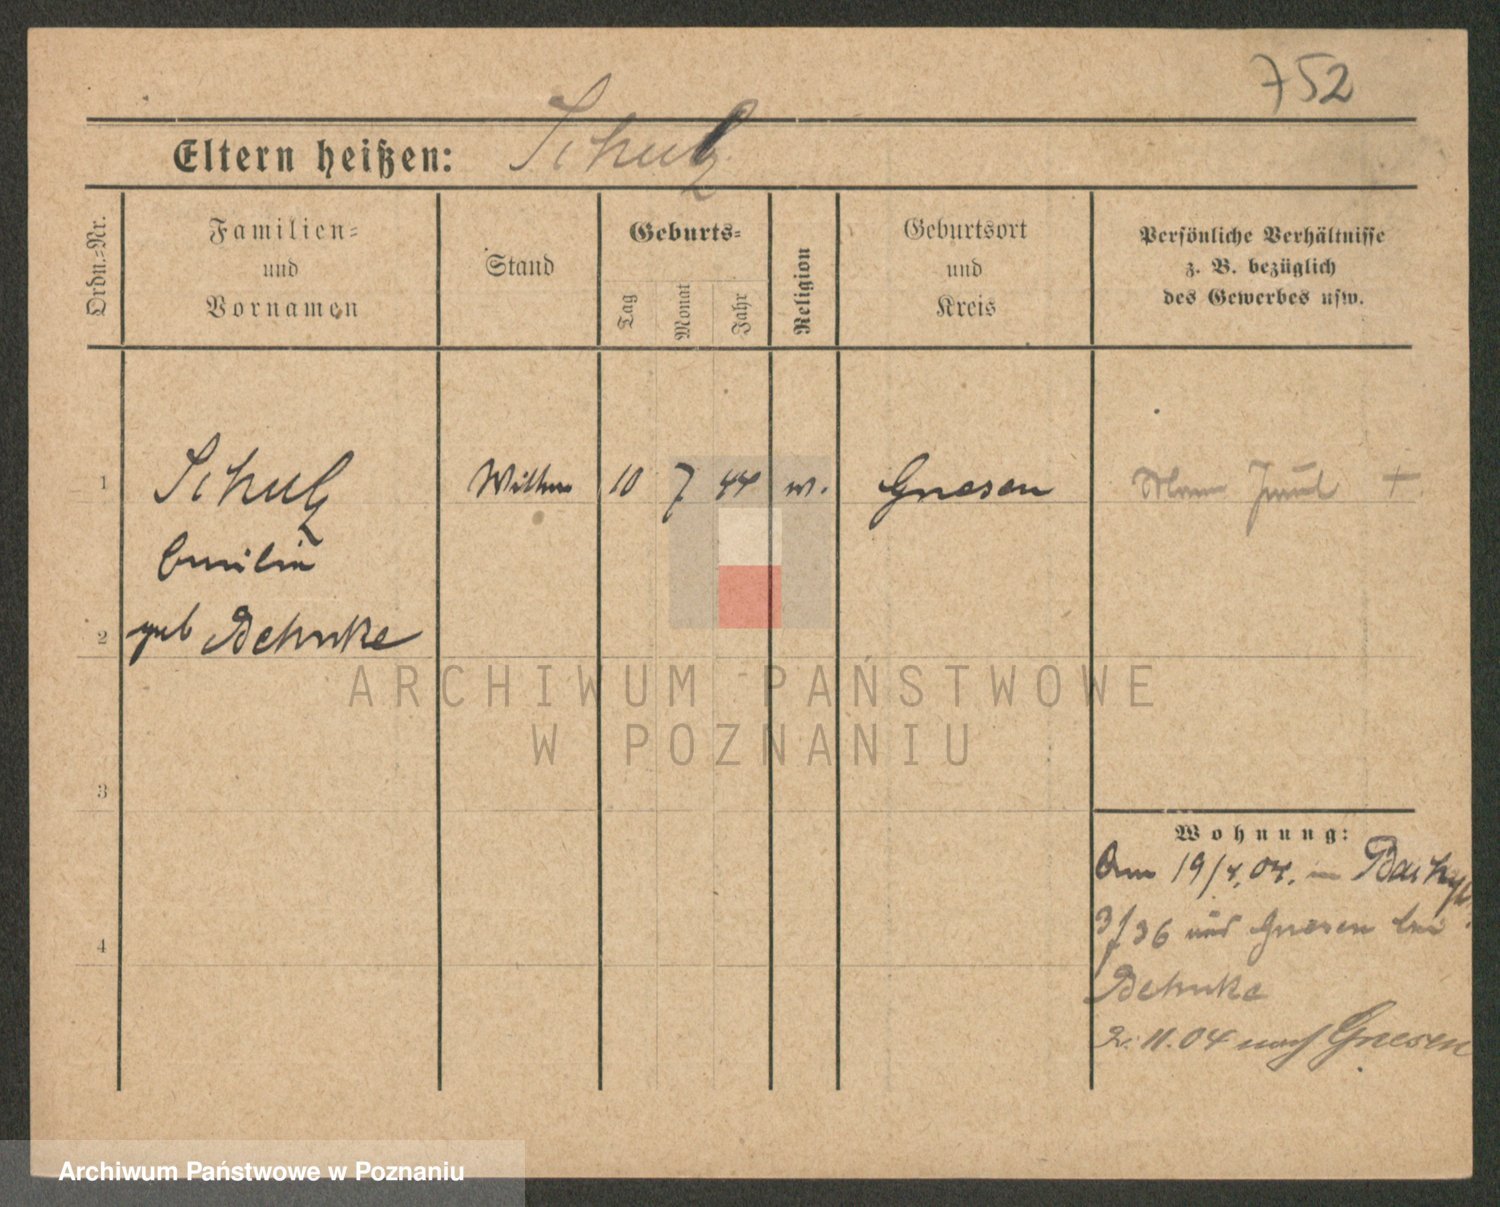 752
Eltern heißen: Schulz
Ordn.-Nr.
Familien-
und
Vornamen
Stand
Geburts-
Tag
Monat
Jahr
Religion
Geburtsort
und
Kreis
Persönliche Verhältnisse
z. B. bezüglich
des Gewerbes usw.
1 Schulz Witwe 10 7 44 Gnesen Mann Paul †
Emilie
2 geb Behnke
ARCHIWUM PAŃSTWOWE
W POZNANIU
3
Wohnung:
19/4.04. in
3/36 aus Gnesen bei
4
Behnke
2.11.04 nach Gnesen
Archiwum Państwowe w Poznaniu